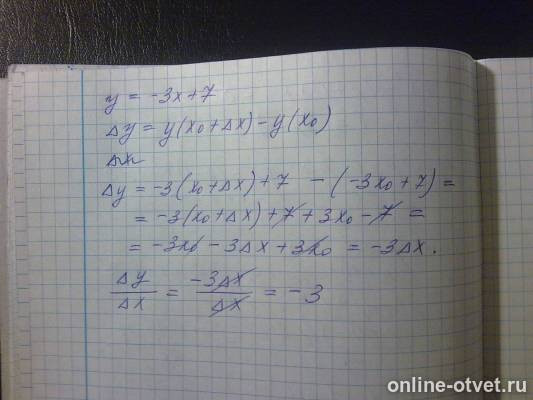 y = -3x+7
Δy = y(x₀+Δx) - y(x₀)
Δx
Δy = -3(x₀+Δx)+7 - (-3x₀+7) =
= -3(x₀+Δx)+7+3x₀-7 =
= -3x₀-3Δx+3x₀ = -3Δx.
Δy/Δx = -3Δx/Δx = -3
online-otvet.ru